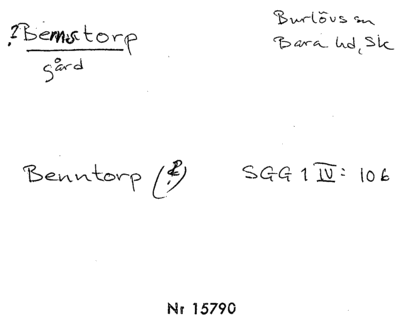 ?Bernstorp
gård
Burlövs sn
Bara hd, Sk
Benntorp (?)
SGG 1 IV: 106
Nr 15790